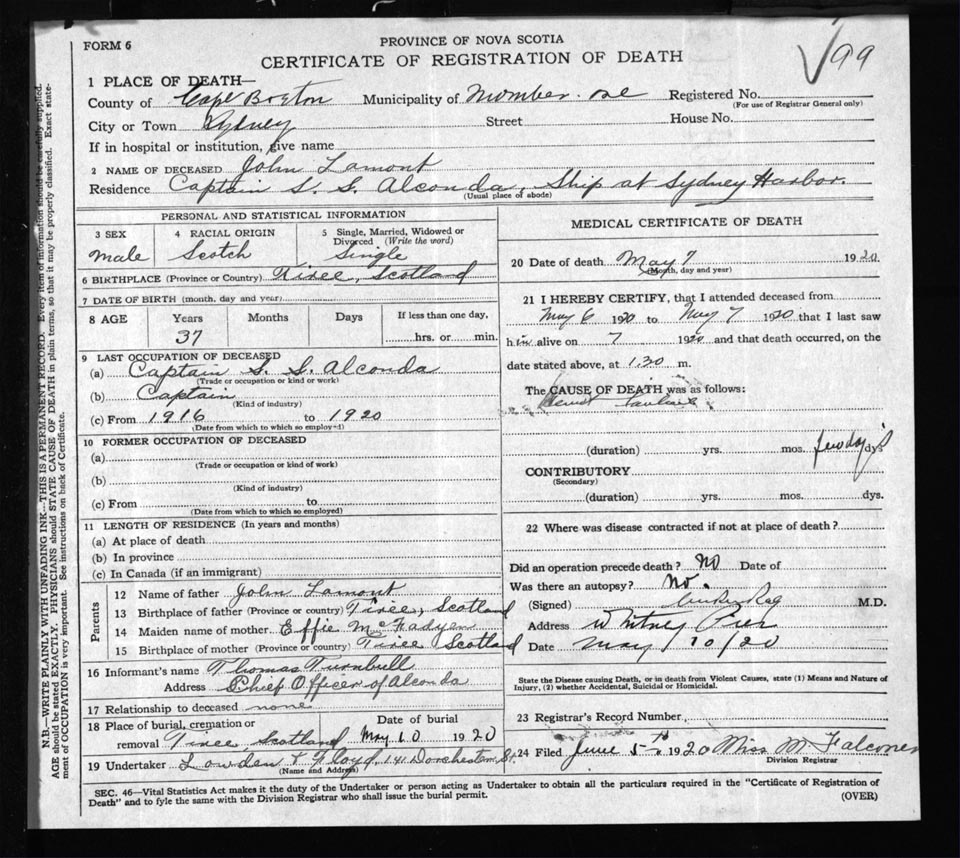 FORM 6
PROVINCE OF NOVA SCOTIA
CERTIFICATE OF REGISTRATION OF DEATH
99
1 PLACE OF DEATH—
County of Cape Breton Municipality of Registered No.
(For use of Registrar General only)
City or Town Sydney Street House No.
If in hospital or institution, give name
2 NAME OF DECEASED John Lamont
Residence Captain S. S. Alconda, Ship at Sydney Harbor.
(Usual place of abode)
PERSONAL AND STATISTICAL INFORMATION
3 SEX 4 RACIAL ORIGIN 5 Single, Married, Widowed or Divorced (Write the word)
Male Scotch Single
6 BIRTHPLACE (Province or Country) Tiree, Scotland
7 DATE OF BIRTH (month, day and year)
8 AGE Years Months Days If less than one day,
37 hrs. or min.
9 LAST OCCUPATION OF DECEASED
(a) Captain S. S. Alconda
(Trade or occupation or kind or work)
(b) Captain
(Kind of industry)
(c) From 1916 to 1920
(Date from which to which so employed)
10 FORMER OCCUPATION OF DECEASED
(a)
(Trade or occupation or kind of work)
(b)
(Kind of industry)
(c) From to
(Date from which to which so employed)
11 LENGTH OF RESIDENCE (In years and months)
(a) At place of death
(b) In province
(c) In Canada (if an immigrant)
Parents
12 Name of father John Lamont
13 Birthplace of father (Province or country) Tiree, Scotland
14 Maiden name of mother Effie McFadyen
15 Birthplace of mother (Province or country) Tiree Scotland
16 Informant's name Thomas Turnbull
Address Chief Officer of Alconda
17 Relationship to deceased none
18 Place of burial, cremation or Date of burial
removal Tiree, Scotland May 10 1920
19 Undertaker Lowden & Floyd, 141 Dorchester St.
(Name and Address)
MEDICAL CERTIFICATE OF DEATH
20 Date of death May 7 1920
(Month, day and year)
21 I HEREBY CERTIFY, that I attended deceased from
May 6 1920 to May 7 1920 that I last saw
him alive on 7 1920 and that death occurred, on the
date stated above, at 1.30 m.
The CAUSE OF DEATH was as follows:
(duration) yrs. mos. few days dys.
CONTRIBUTORY
(Secondary)
(duration) yrs. mos. dys.
22 Where was disease contracted if not at place of death?
Did an operation precede death? No Date of
Was there an autopsy? No.
(Signed) M.D.
Address Whitney Pier
Date May 10/20
State the Disease causing Death, or in death from Violent Causes, state (1) Means and Nature of
Injury, (2) whether Accidental, Suicidal or Homicidal.
23 Registrar's Record Number
24 Filed June 5th 1920 Miss M Falconer
Division Registrar
SEC. 46—Vital Statistics Act makes it the duty of the Undertaker or person acting as Undertaker to obtain all the particulars required in the "Certificate of Registration of
Death" and to fyle the same with the Division Registrar who shall issue the burial permit.
(OVER)
N.B.—WRITE PLAINLY WITH UNFADING INK—THIS IS A PERMANENT RECORD. Every item of information should be carefully supplied.
AGE should be stated EXACTLY. PHYSICIANS should STATE CAUSE OF DEATH in plain terms, so that it may be properly classified. Exact state-
ment of OCCUPATION is very important. See instructions on back of Certificate.